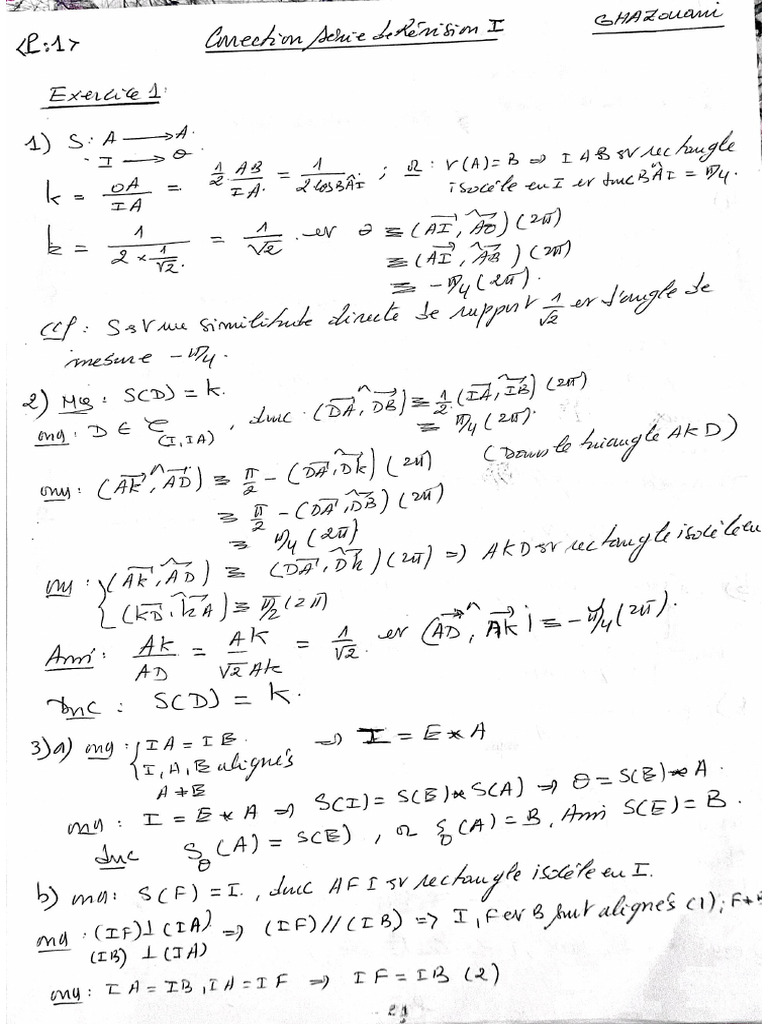 <P:1> Correction Série de Révision I GHAZOUANI
Exercice 1:
1) S: A → A.
I → O
k = OA/IA = 1/2 AB/IA = 1/(2cosBÂI) ; or : r(A)=B ⇒ IAB est rectangle
isocèle en I et donc BÂI = π/4.
k = 1/(2×1/√2) = 1/√2 . et θ ≡ (AI, AO) (2π)
≡ (AI, AB) (2π)
≡ -π/4 (2π).
CCl : S est une similitude directe de rapport 1/√2 et d'angle de
mesure -π/4.
2) Mq : S(D) = k.
ona : D ∈ C(I,IA) , donc (DA, DB) ≡ 1/2 (IA, IB) (2π)
≡ π/4 (2π).
ona : (AK, AD) ≡ π/2 - (DA, DK) (2π) (Dans le triangle AKD)
≡ π/2 - (DA, DB) (2π)
≡ π/4 (2π)
ona : { (AK, AD) ≡ (DA, DK) (2π) ⇒ AKD est rectangle isocèle en
(KD, KA) ≡ π/2 (2π)
Ainsi : AK/AD = AK/(√2 AK) = 1/√2 . et (AD, AK) ≡ -π/4 (2π).
Donc : S(D) = K.
3)a) ona : { IA = IE. ⇒ I = E * A
I, A, E alignés
A ≠ E
ona : I = E * A ⇒ S(I) = S(E) * S(A) ⇒ O = S(E) * A .
donc S_O(A) = S(E) , or S_O(A) = B, Ainsi S(E) = B .
b) ona : S(F) = I. , donc AFI est rectangle isocèle en I.
ona : (IF) ⊥ (IA) ⇒ (IF) // (IB) ⇒ I, F et B sont alignés (1) ; F≠
(IB) ⊥ (IA)
ona : IA = IB, IA = IF ⇒ IF = IB (2)